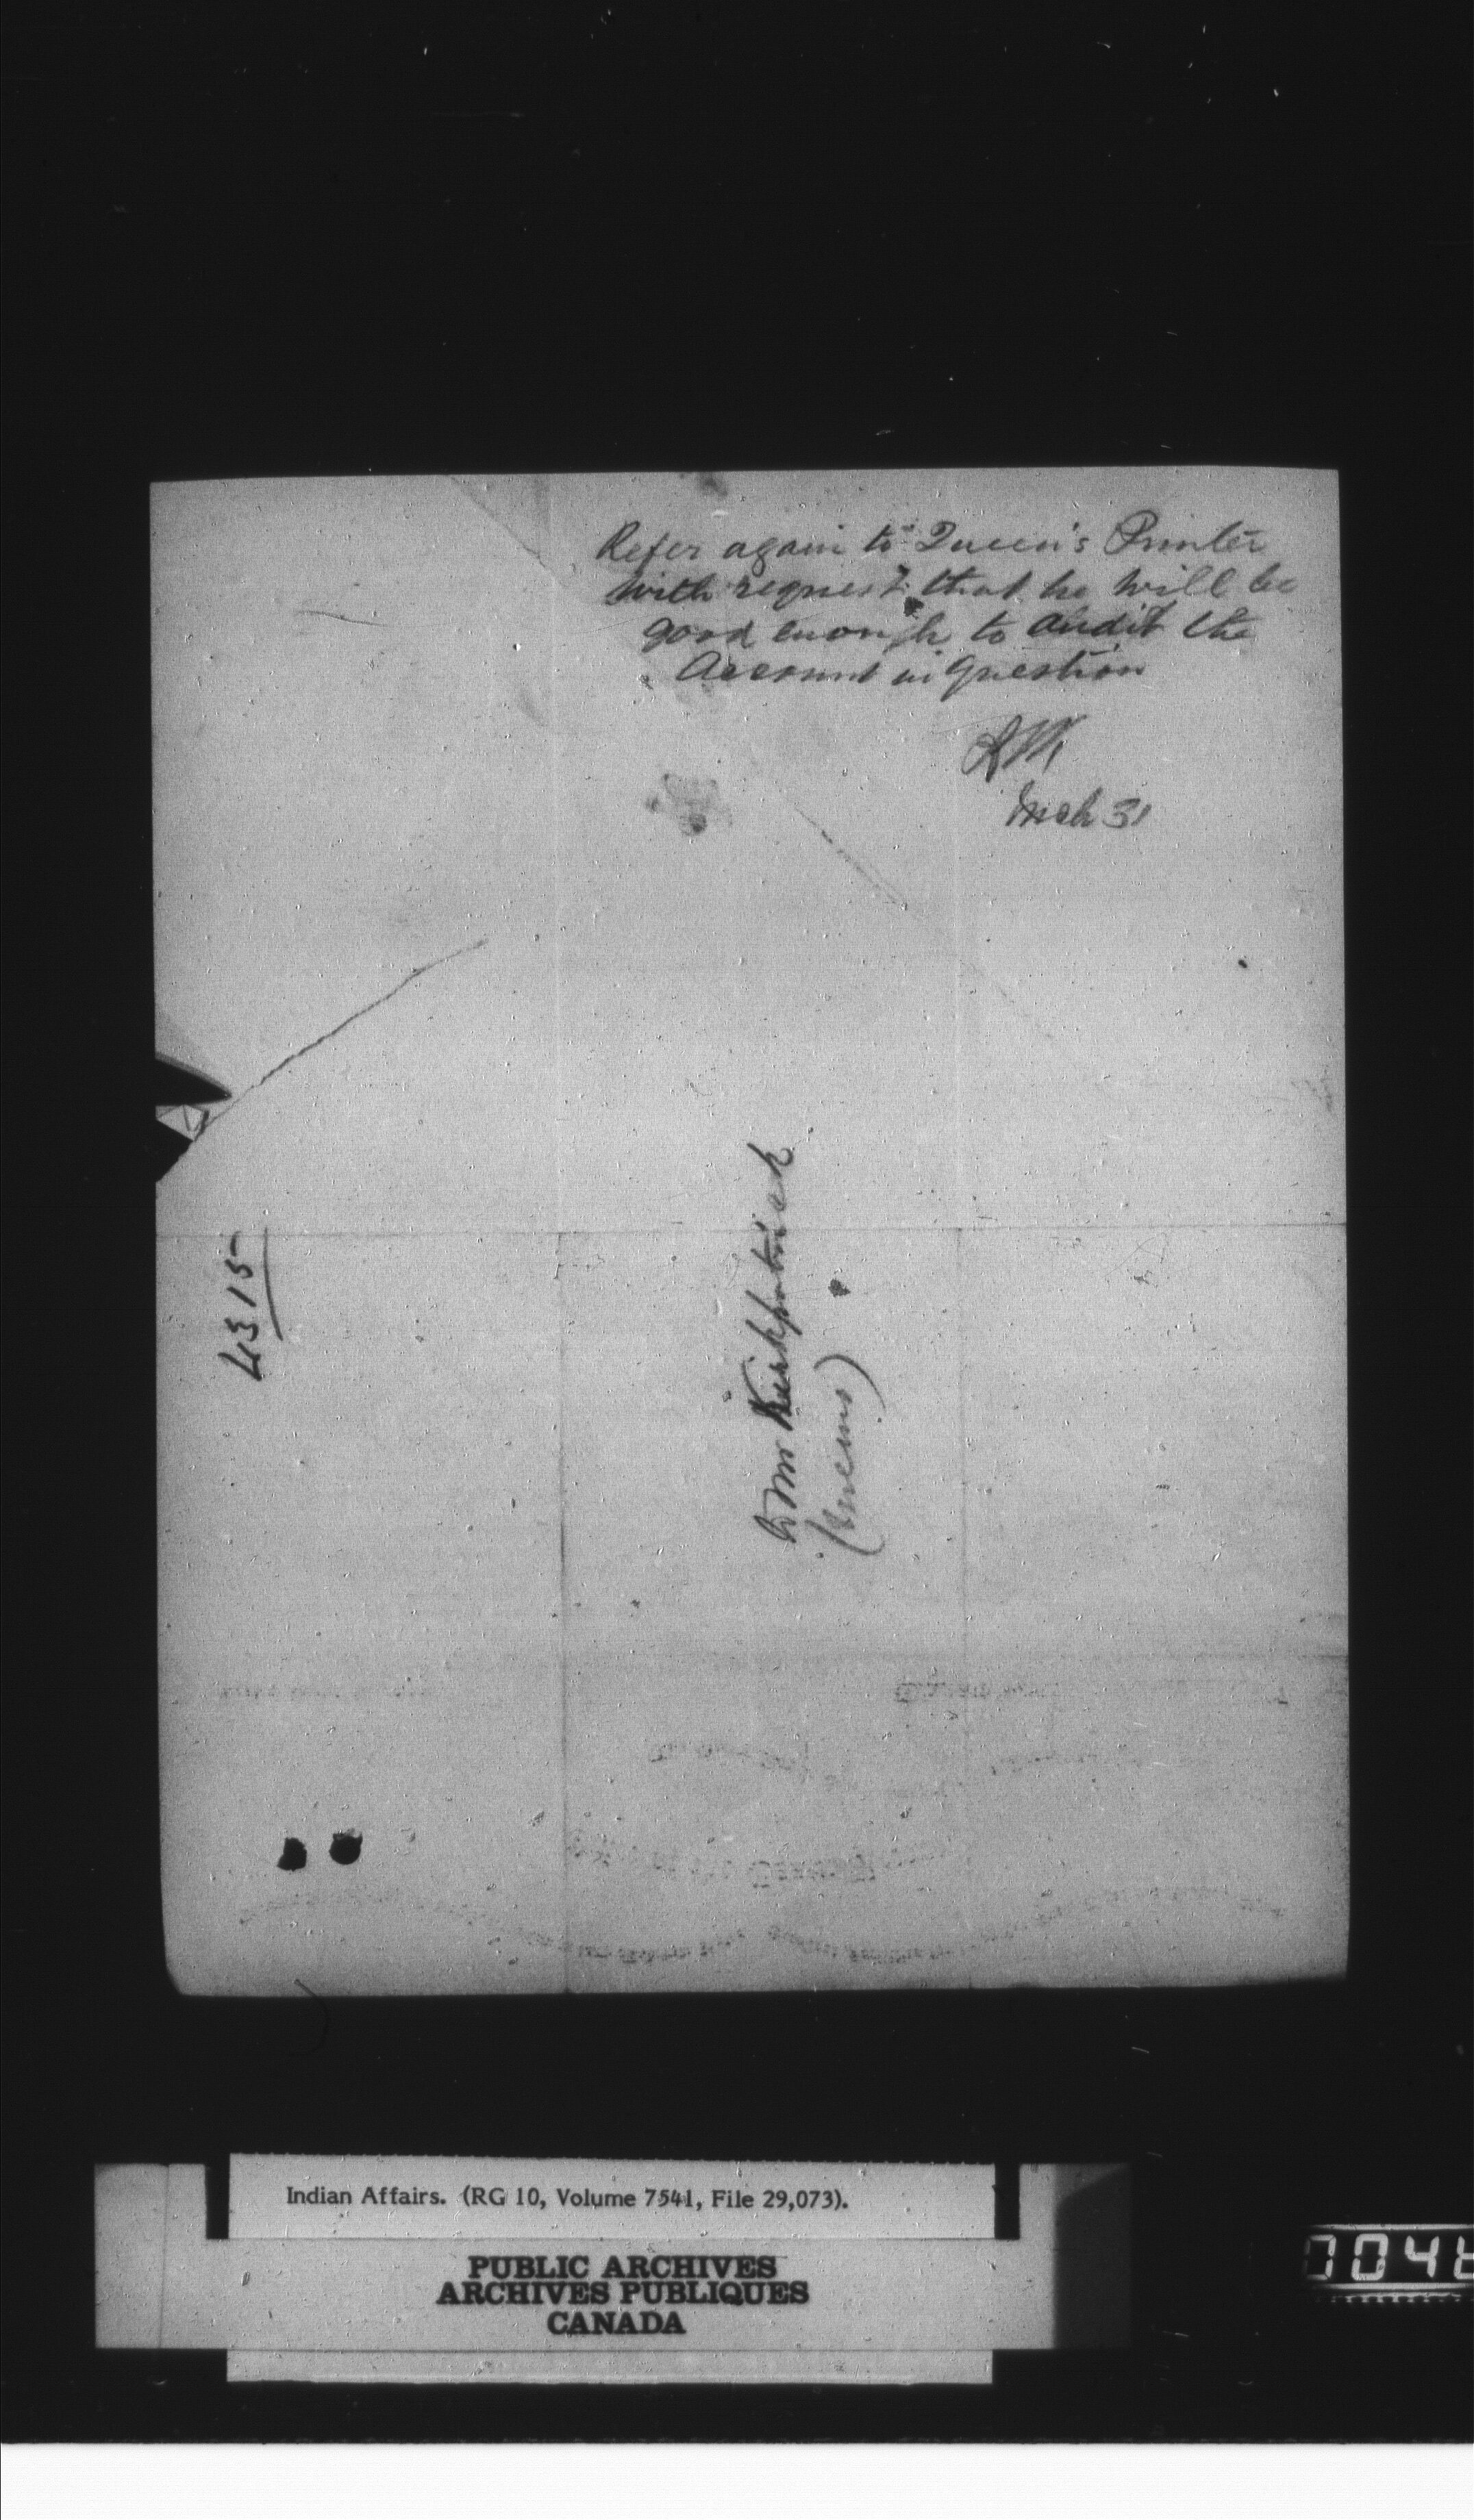 Refer again to Queen's Printer
with request that he will be
good enough to audit the
Account in question
Mch 31
4315
Mr Kirkpatrick
Indian Affairs. (RG 10, Volume 7541, File 29,073).
PUBLIC ARCHIVES
ARCHIVES PUBLIQUES
CANADA